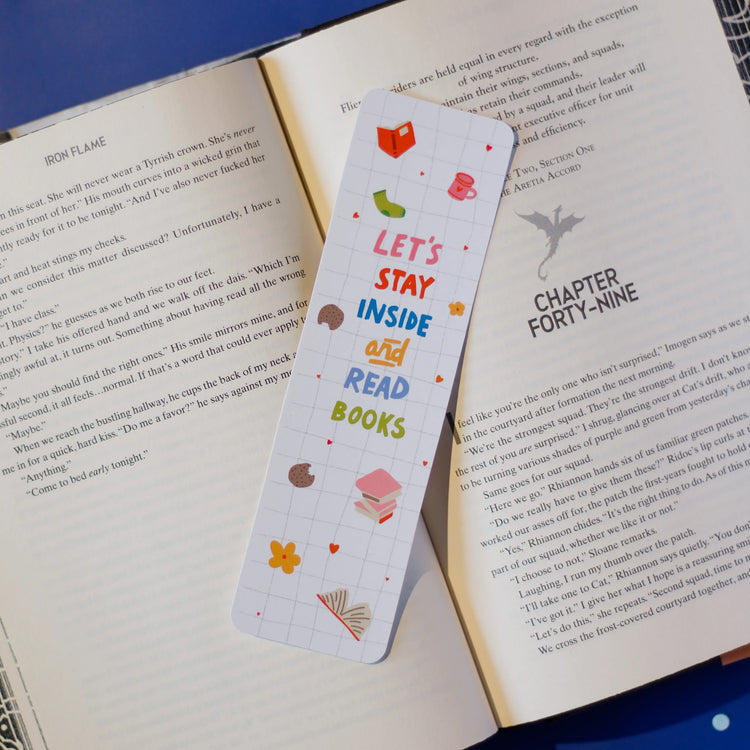 IRON FLAME
n this seat. She will never wear a Tyrrish crown. She's never
ees in front of her." His mouth curves into a wicked grin that
tly ready for it to be tonight. "And I've also never fucked her
art and heat stings my cheeks.
n we consider this matter discussed? Unfortunately, I have a
get to."
"I have class."
. Physics?" he guesses as we both rise to our feet.
ory." I take his offered hand and we walk off the dais. "Which I'm
ingly awful at, it turns out. Something about having read all the wrong
Maybe you should find the right ones." His smile mirrors mine, and for
ssful second, it all feels...normal. If that's a word that could ever apply to
"Maybe."
When we reach the bustling hallway, he cups the back of my neck
me in for a quick, hard kiss. "Do me a favor?" he says against my
"Anything."
"Come to bed early tonight."
LET'S
STAY
INSIDE
and
READ
BOOKS
Flier riders are held equal in every regard with the exception
of wing structure.
maintain their wings, sections, and squads,
as retain their commands.
by a squad, and their leader will
executive officer for unit
and efficiency.
Two, Section One
The Aretia Accord
CHAPTER
FORTY-NINE
feel like you're the only one who isn't surprised," Imogen says as we
in the courtyard after formation the next morning.
"We're the strongest squad. They're the strongest drift. I don't
the rest of you are surprised." I shrug, glancing over at Cat's drift, who
to be turning various shades of purple and green from yesterday's
Same goes for our squad.
"Here we go." Rhiannon hands six of us familiar green patches.
"Do we really have to give them these?" Ridoc's lip curls at
worked our asses off for, the patch the first-years fought to hold
"Yes," Rhiannon chides. "It's the right thing to do. As of this
part of our squad, whether we like it or not."
"I choose to not," Sloane remarks.
Laughing, I run my thumb over the patch.
"I'll take one to Cat," Rhiannon says quietly. "You don't
"I've got it." I give her what I hope is a reassuring
"Let's do this," she repeats. "Second squad, time to
We cross the frost-covered courtyard together, and